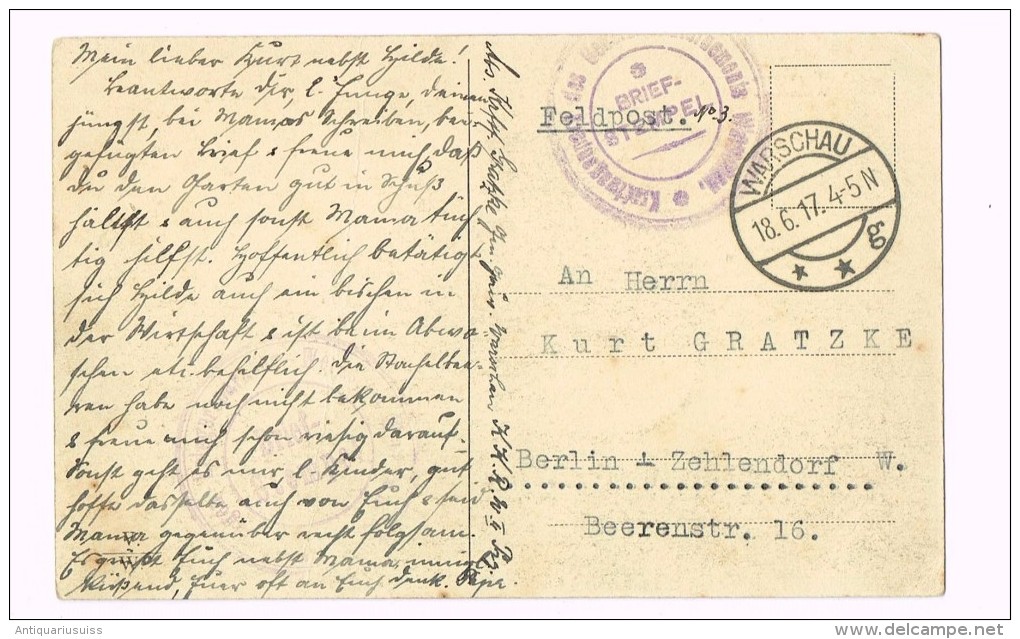 Mein lieber Kurt nebst Hilde!
Beantworte dir, l. Junge, deinen
jüngst, bei Mamas Schreiben, bei-
gefügten Brief & freue mich, daß
du den Garten gut in Schuß
hältst & auch sonst Mama tüch-
tig hilfst. Hoffentlich betätigt
sich Hilde auch ein bischen in
der Wirtschaft & ist beim Abwa-
schen etc. behilflich. Die Stachelbee-
ren habe noch nicht bekommen
& freue mich schon riesig darauf.
Sonst geht es mir, l. Kinder, gut
hoffe dasselbe auch von Euch & seid
Mama gegenüber recht folgsam.
Es grüßt Euch nebst Mama, innig
küssend, Euer oft an Euch denk. Papa.
Abs. Gratzke Warschau
BRIEF-
STEMPEL
Feldpost. No 3.
WARSCHAU
18.6.17. 4-5 N
An Herrn
Kurt GRATZKE
Berlin - Zehlendorf W.
Beerenstr. 16.
Antiquariusuiss
delcampe.net